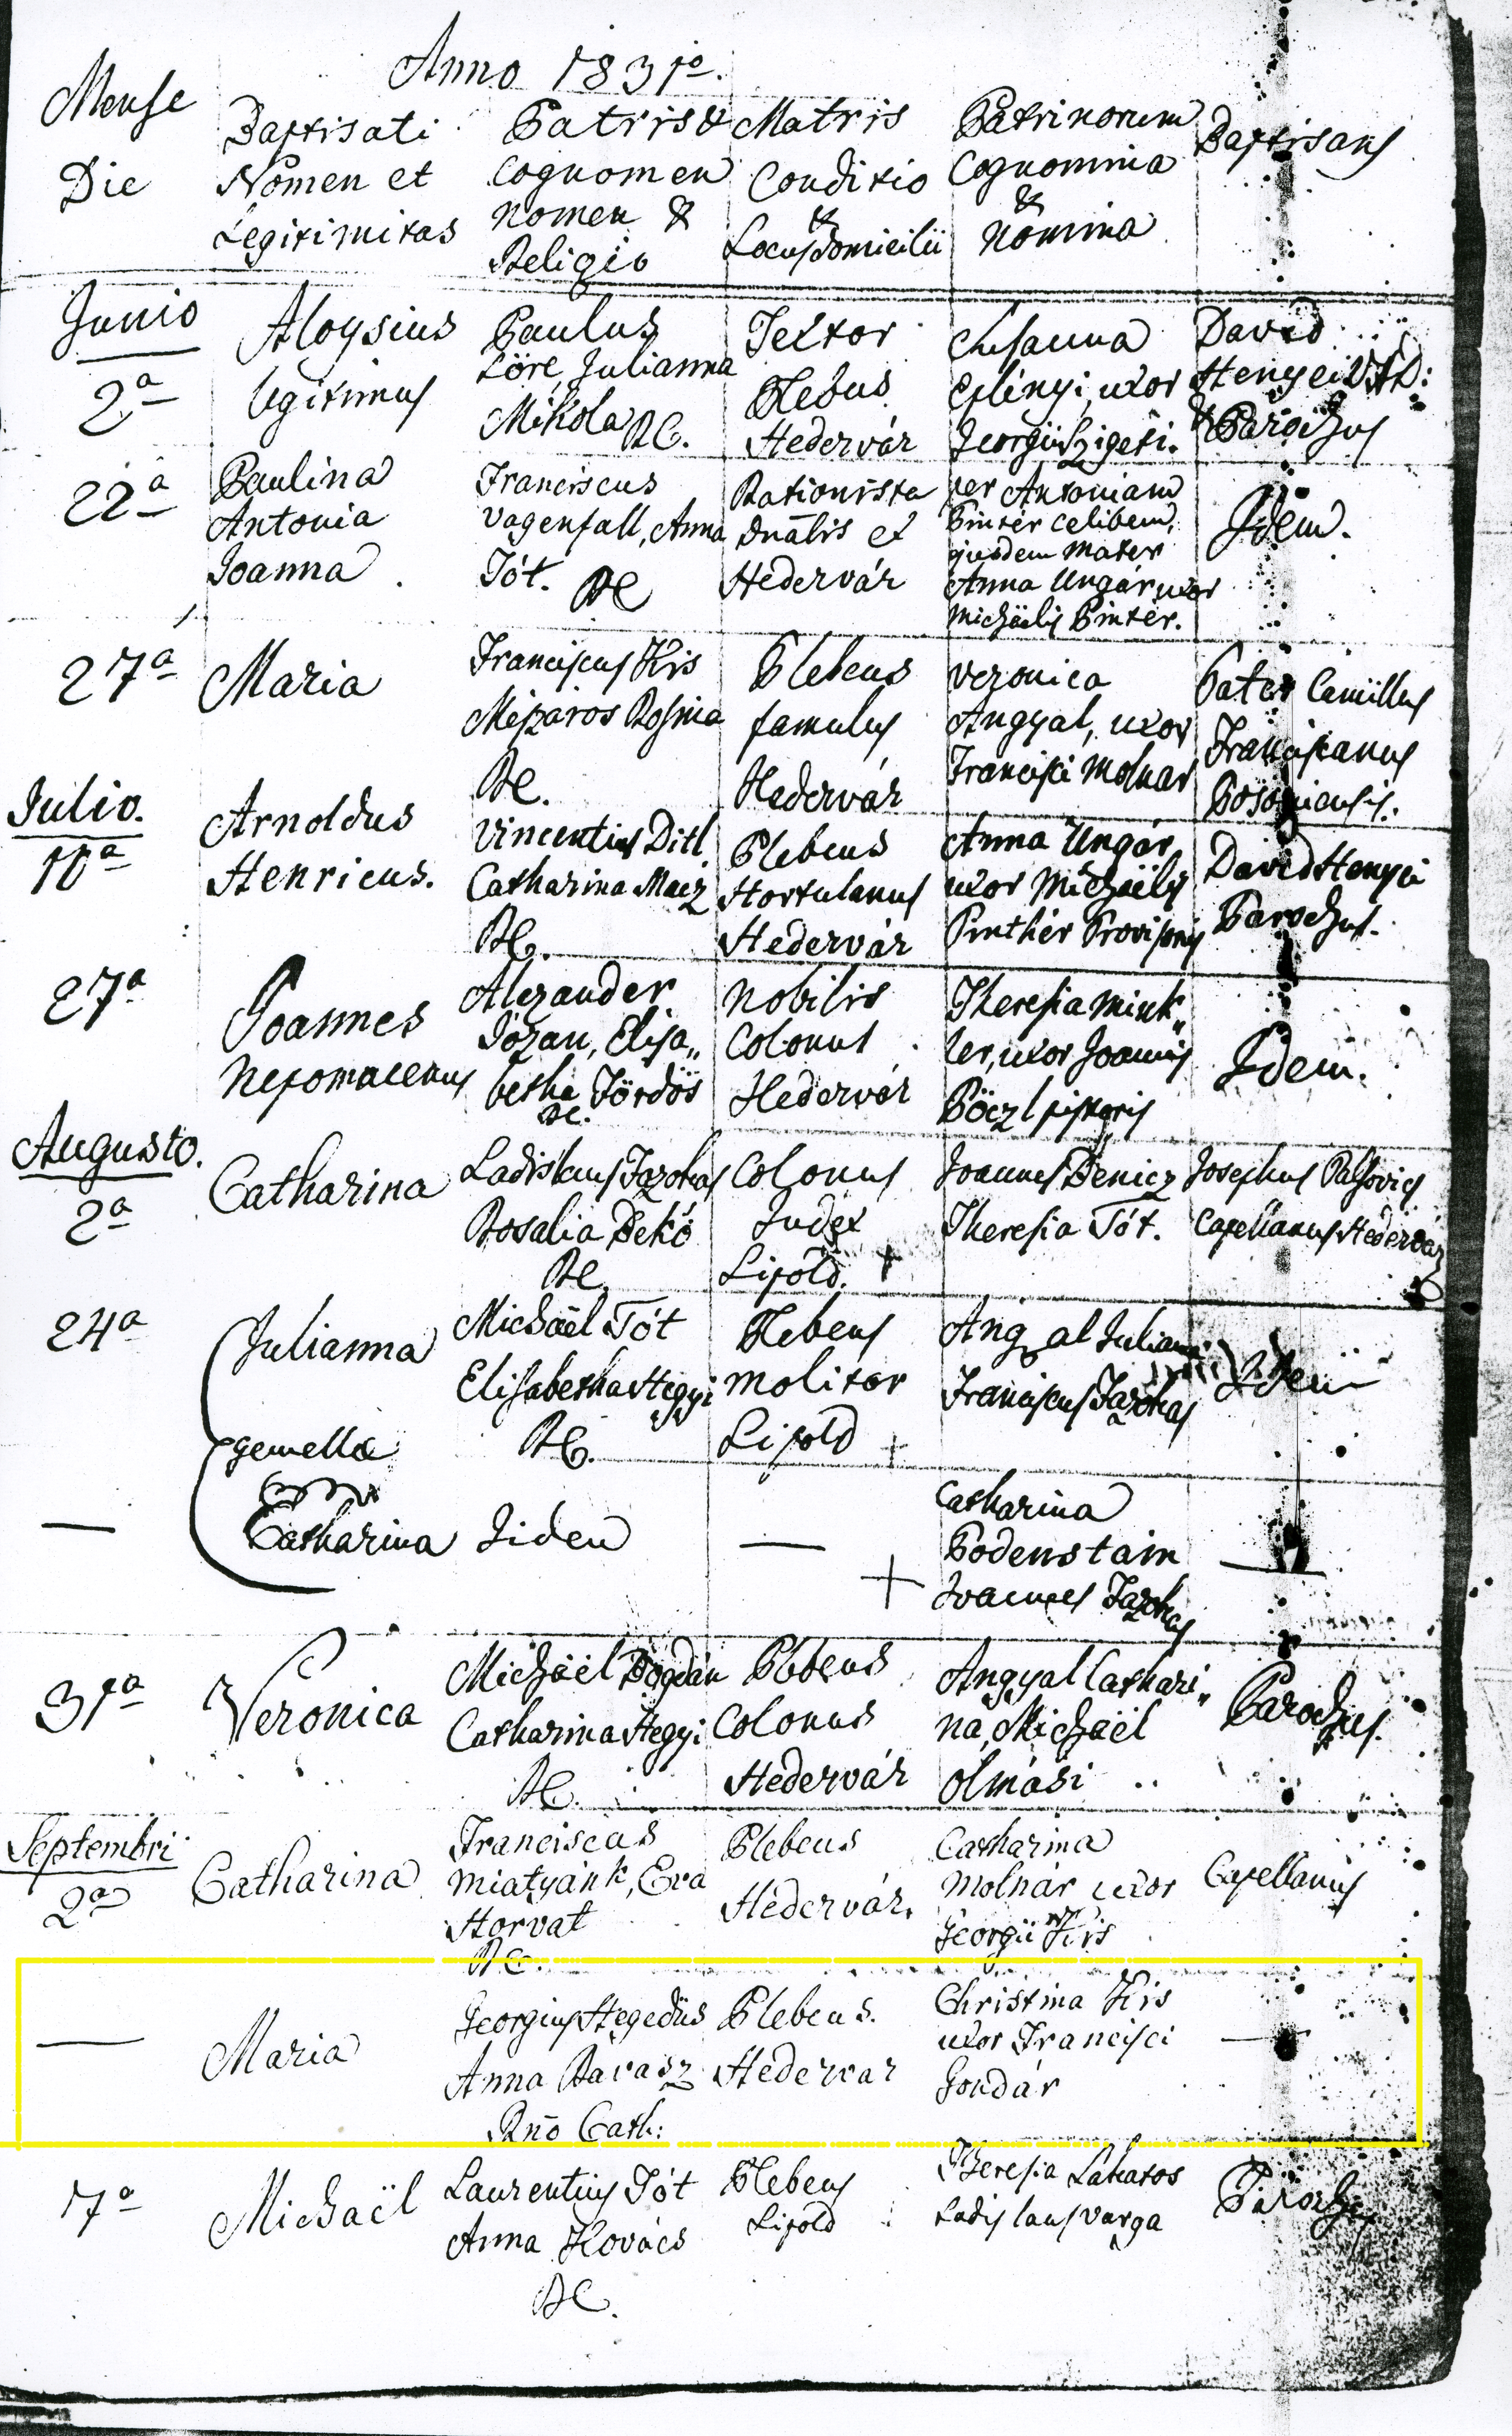 Anno 1831º.
Mense
Die
Baptisati
Nomen et
Legitimitas
Patris &
Cognomen
Nomen &
Religio
Matris
Conditio
&
Locus domicilii
Patrinorum
Cognomina
&
Nomina
Baptisans
Junio
2ª
Aloysius
legitimus
Paulus
Löre, Julianna
Mikola RC.
Textor
Plebus
Hedervár
Susanna
uxor
Georgii Szigeti.
David
Henyei
& Parochus
22ª
Paulina
Antonia
Joanna
Franciscus
Vagenfall, Anna
Tót. RC
Rationista
et
Hedervár
per Antoniam
Pinter celibem,
mater
Anna Ungár uxor
Michäelis Pinter.
Idem.
27ª
Maria
Franciscus Kis
Meszaros Rosina
RC.
Plebeus
famulus
Hedervár
Veronica
Angyal, uxor
Francisci Molnar
Pater Camillus
Franciscanus
Julio.
10ª
Arnoldus
Henricus.
Vincentius Ditl
Catharina
RC.
Plebeus
Hortulanus
Hedervár
Anna Ungár
uxor Michäelis
Pinthér Provisoris
David Henyei
Parochus.
27ª
Joannes
Nepomucenus
Alexander
Józan, Elisa„
betha Tördös
RC.
Nobilis
Colonus
Hedervár
Theresia Mink„
ler, uxor Joannis
Böczl pistoris
Idem.
Augusto.
2ª
Catharina
Ladislaus Jazokas
Rosalia Dekó
RC
Colonus
Judex
Lipold. +
Joannes Benicz
Theresia Tót.
Josephus Palkovics
Capellanus Hedervár
24ª
Julianna
gemella
Michäel Tót
Elisabetha Hegyi
RC.
Plebeus
Molitor
Lipold +
Angyal Julianna
Franciscus Jazokas
Idem
—
Catharina
Iidem
—
+
Catharina
Bodenstain
Joannes Jazokas
—
31ª
Veronica
Michäel Bogdán
Catharina Hegyi
RC.
Plebeus
Colonus
Hedervár
Angyal Cathari„
na, Michäel
Olmási
Parochus.
Septembri
2ª
Catharina
Franciscus
Miatyánk, Eva
Horvat
RC.
Plebeus
Hedervár.
Catharina
Molnár uxor
Georgii Kis
Capellanus
—
Maria
Georgius Hegedüs
Anna Ravasz
Rno Cath:
Plebeus.
Hedervar
Christina Kis
uxor Francisci
Gondár
—
7ª
Michaël
Laurentius Tót
Anna Kovács
RC.
Plebeus
Lipold
Theresia Lakatos
Ladislaus Varga
Parochus